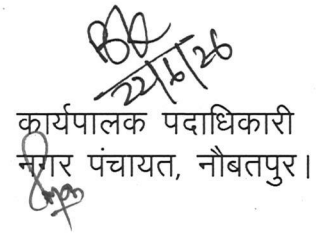 22/6/26
कार्यपालक पदाधिकारी
नगर पंचायत, नौबतपुर।